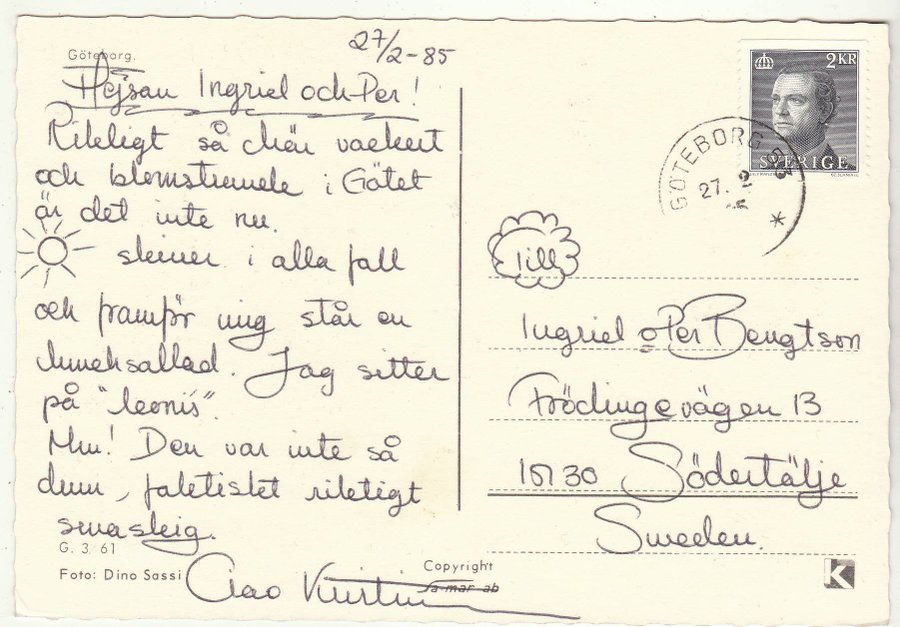 Göteborg.
27/2-85
Hejsan Ingrid och Per!
Riktigt så här vackert
och blomstrande i Götet
är det inte nu.
skiner i alla fall
och framför mig står en
lunchsallad. Jag sitter
på "leonis".
Mm! Den var inte så
dum, faktiskt riktigt
smaskig.
Ciao Kristin
G. 3 61
Foto: Dino Sassi
Copyright
sa-mar ab
2KR
SVERIGE
GÖTEBORG
27. 2
Till
Ingrid o Per Bengtson
Frödingevägen 13
151 30 Södertälje
Sweden.
K